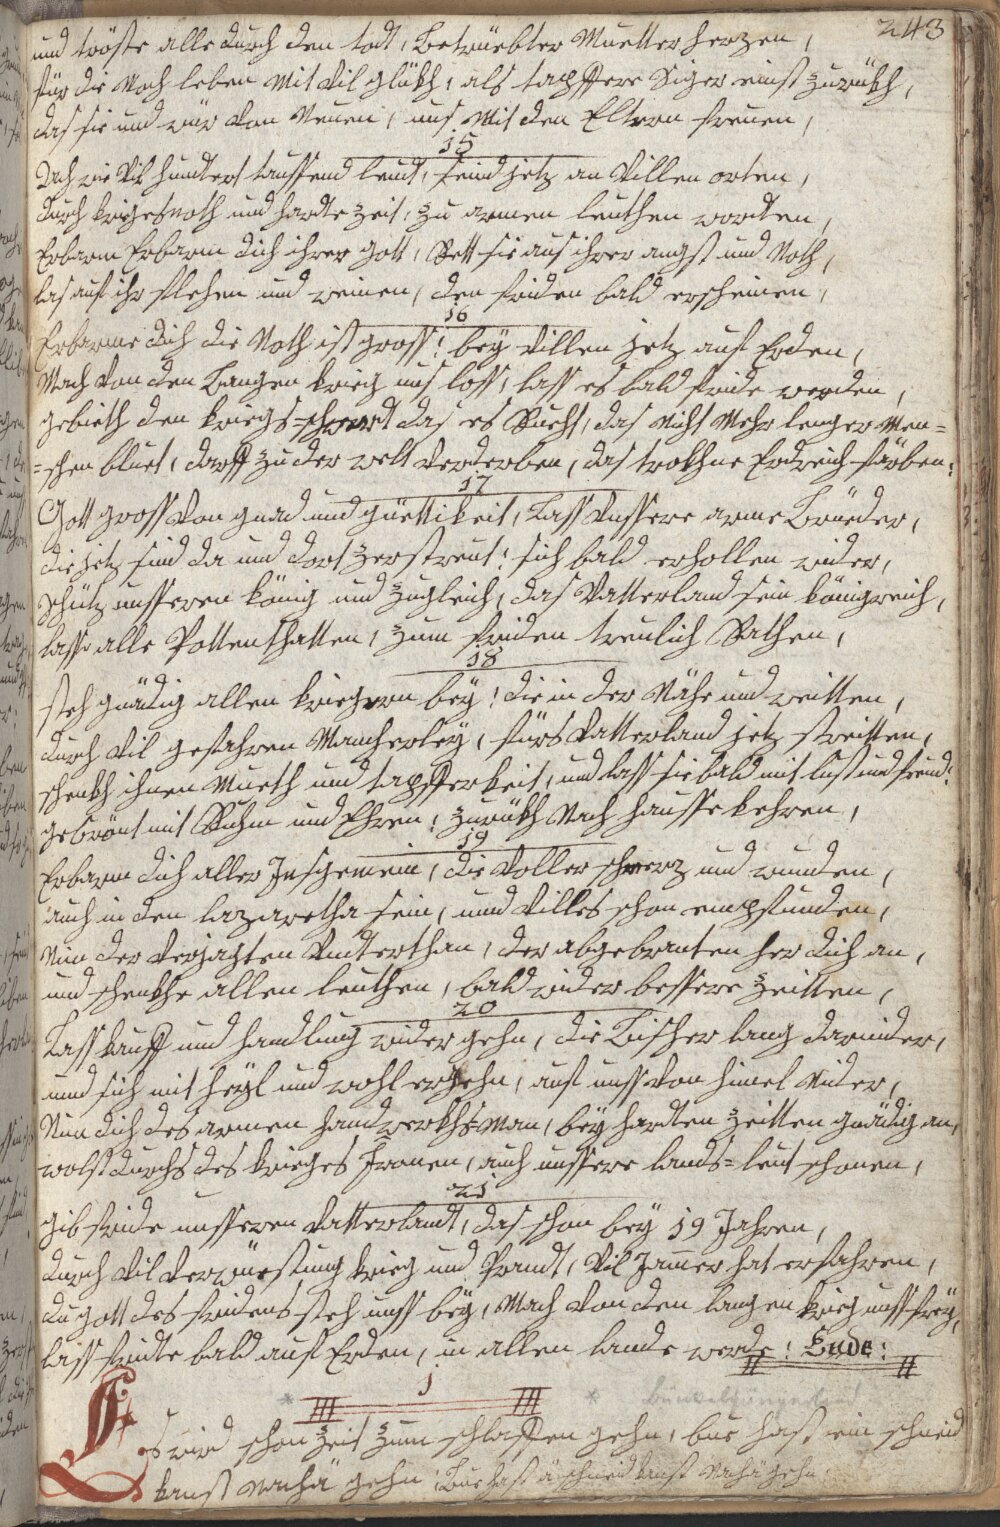 243
und tröste alle durch den todt, Betrüebter Muetter herzen,
für die Noch leben Mit Vil glükh, als tapffere Siger einst zurükh,
das sie und wür Von Neuen, uns Mit den Eltern freuen,
15
Ach wie Vil hundert taussend leudt, seind jetz an Villen orten,
durch kriegesnoth und hardte zeit, zu armen leuthen worden,
Erbarm Erbarm dich ihrer Gott, Rett sie aus ihrer angst und Noth,
las auf ihr flehen und weinen, den friden bald erscheinen,
16
Erbarme dich die Noth ist gross! bey Villen jetz auf Erden,
Mach Von den Langen krieg uns loss, lass es bald fride werden,
gebieth den kriegs-schwerdt das es Ruht, das Nicht Mehr lenger Men=
=schen bluet, darff zu der welt Verderben, das trokhne Erdreich färben:
17
Gott gross Von gnad und güettikeit, Lass Unssere arme Brüeder,
die jetz sind da und dort zerstreut: sich bald erhollen wider,
Schütz unsseren könig und zugleich, das Vatterland sein königreich,
lasse alle Pottenthatten, zum friden treulich Rathen,
18
steh gnädig allen kriegern bey! die in der Nähe und weitten,
durch Vil gefahren Mancherley, fürs Vatterland jetz streitten,
schenkh ihnen Mueth und tapfferkeit, und lass sie bald mit lust und freud:
gekrönt mit Ruhm und Ehren, zurükh Nach hausse kehren,
19
Erbarm dich aller Insgemein, die Voller schmerz und wunden,
auch in den lazaretha sein, und Villes schon empfunden,
Nim der Verjagten Unterthan, der abgebranten her dich an,
und schenkhe allen leuthen, bald wider bessere zeitten,
20
Lass kauff und handlung wider gehn, die Bisher lang darnider,
und sich mit heyl und wohl ergehn, auf unss Von himel Nider,
Nim dich des armen handwerkhs-Man, bey hardten zeitten gnädig an,
wolst durchs des krieges fronen, auch unssere lands=leut schonen,
21
gib fride unsseren Vatterlandt, das schon bey 19 Jahren,
durch Vil Verwüestung krieg und Prandt, Vil Jamer hat erfahren,
du gott des fridens steh unss bey, Mach Von den langen krieg unss frey,
lass fridte bald auf Erden, in allen lande werde: Ende:
1
Es wird schon zeit zum schlaffen gehn, bue hast ein schneid
kanst nachä gehn :/: Bue hast ä schneid kanst nachä gehn: